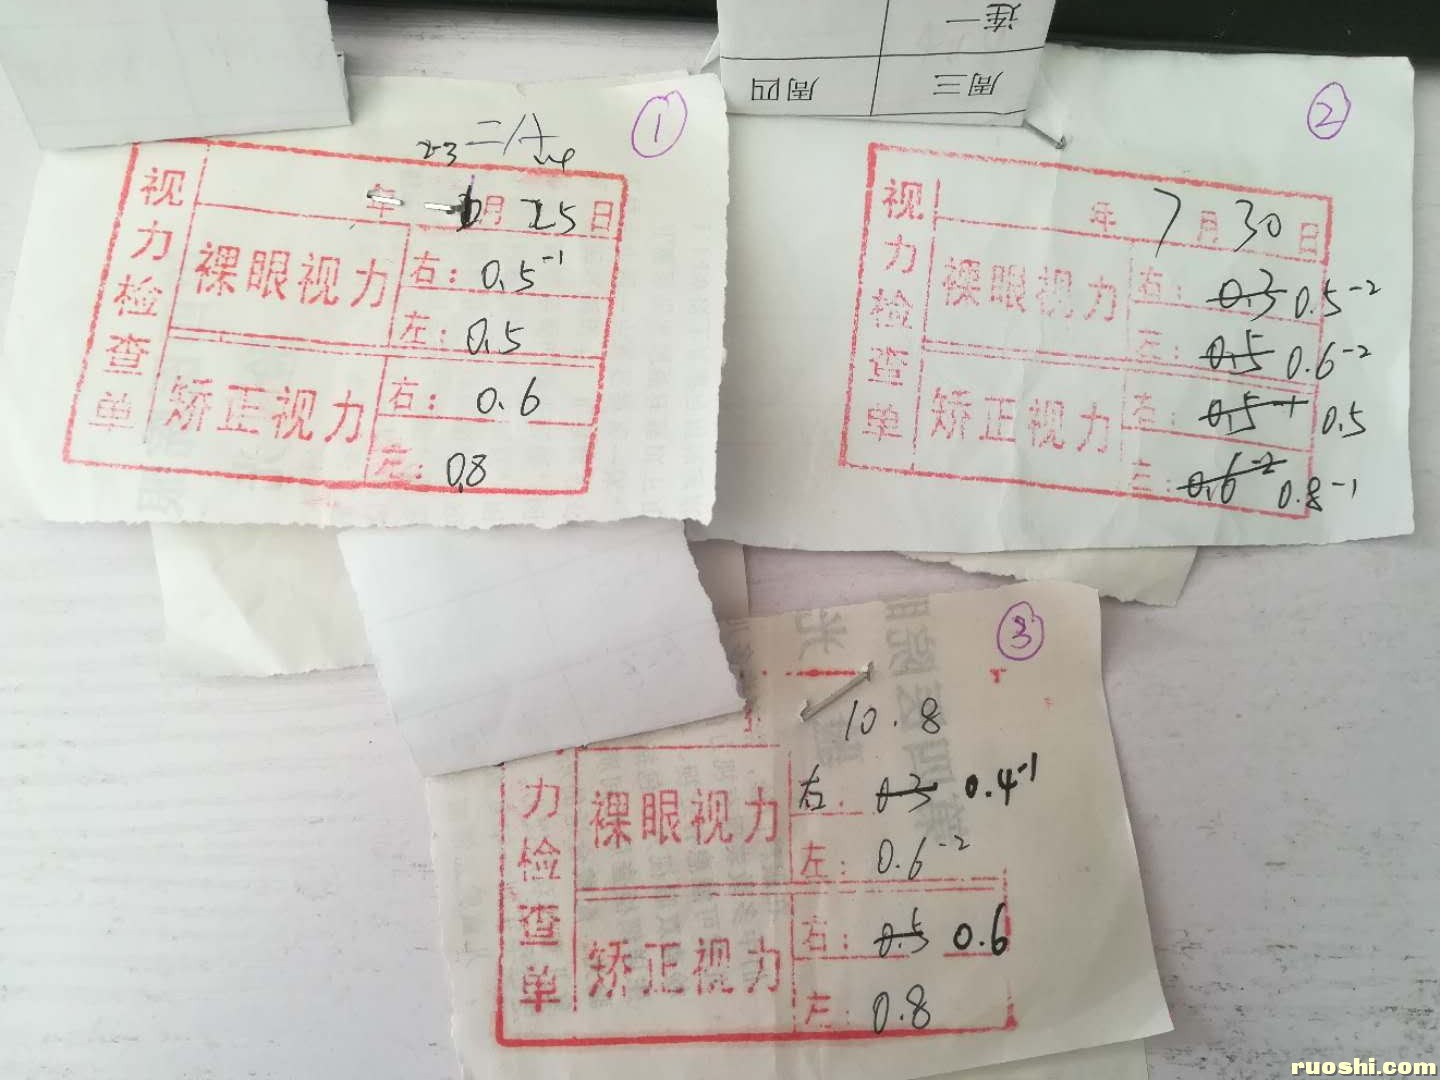 连一
周三 周四
①
视力检查单
年 月 25日
裸眼视力 右: 0.5⁻¹
左: 0.5
矫正视力 右: 0.6
左: 0.8
②
视力检查单
年 7月30日
裸眼视力 右: 0.3 0.5⁻²
左: 0.5 0.6⁻²
矫正视力 右: 0.5⁻¹ 0.5
左: 0.6⁻² 0.8⁻¹
③
力检查单
10.8
裸眼视力 右: 0.3 0.4⁻¹
左: 0.6⁻²
矫正视力 右: 0.5 0.6
左: 0.8
ruoshi.com